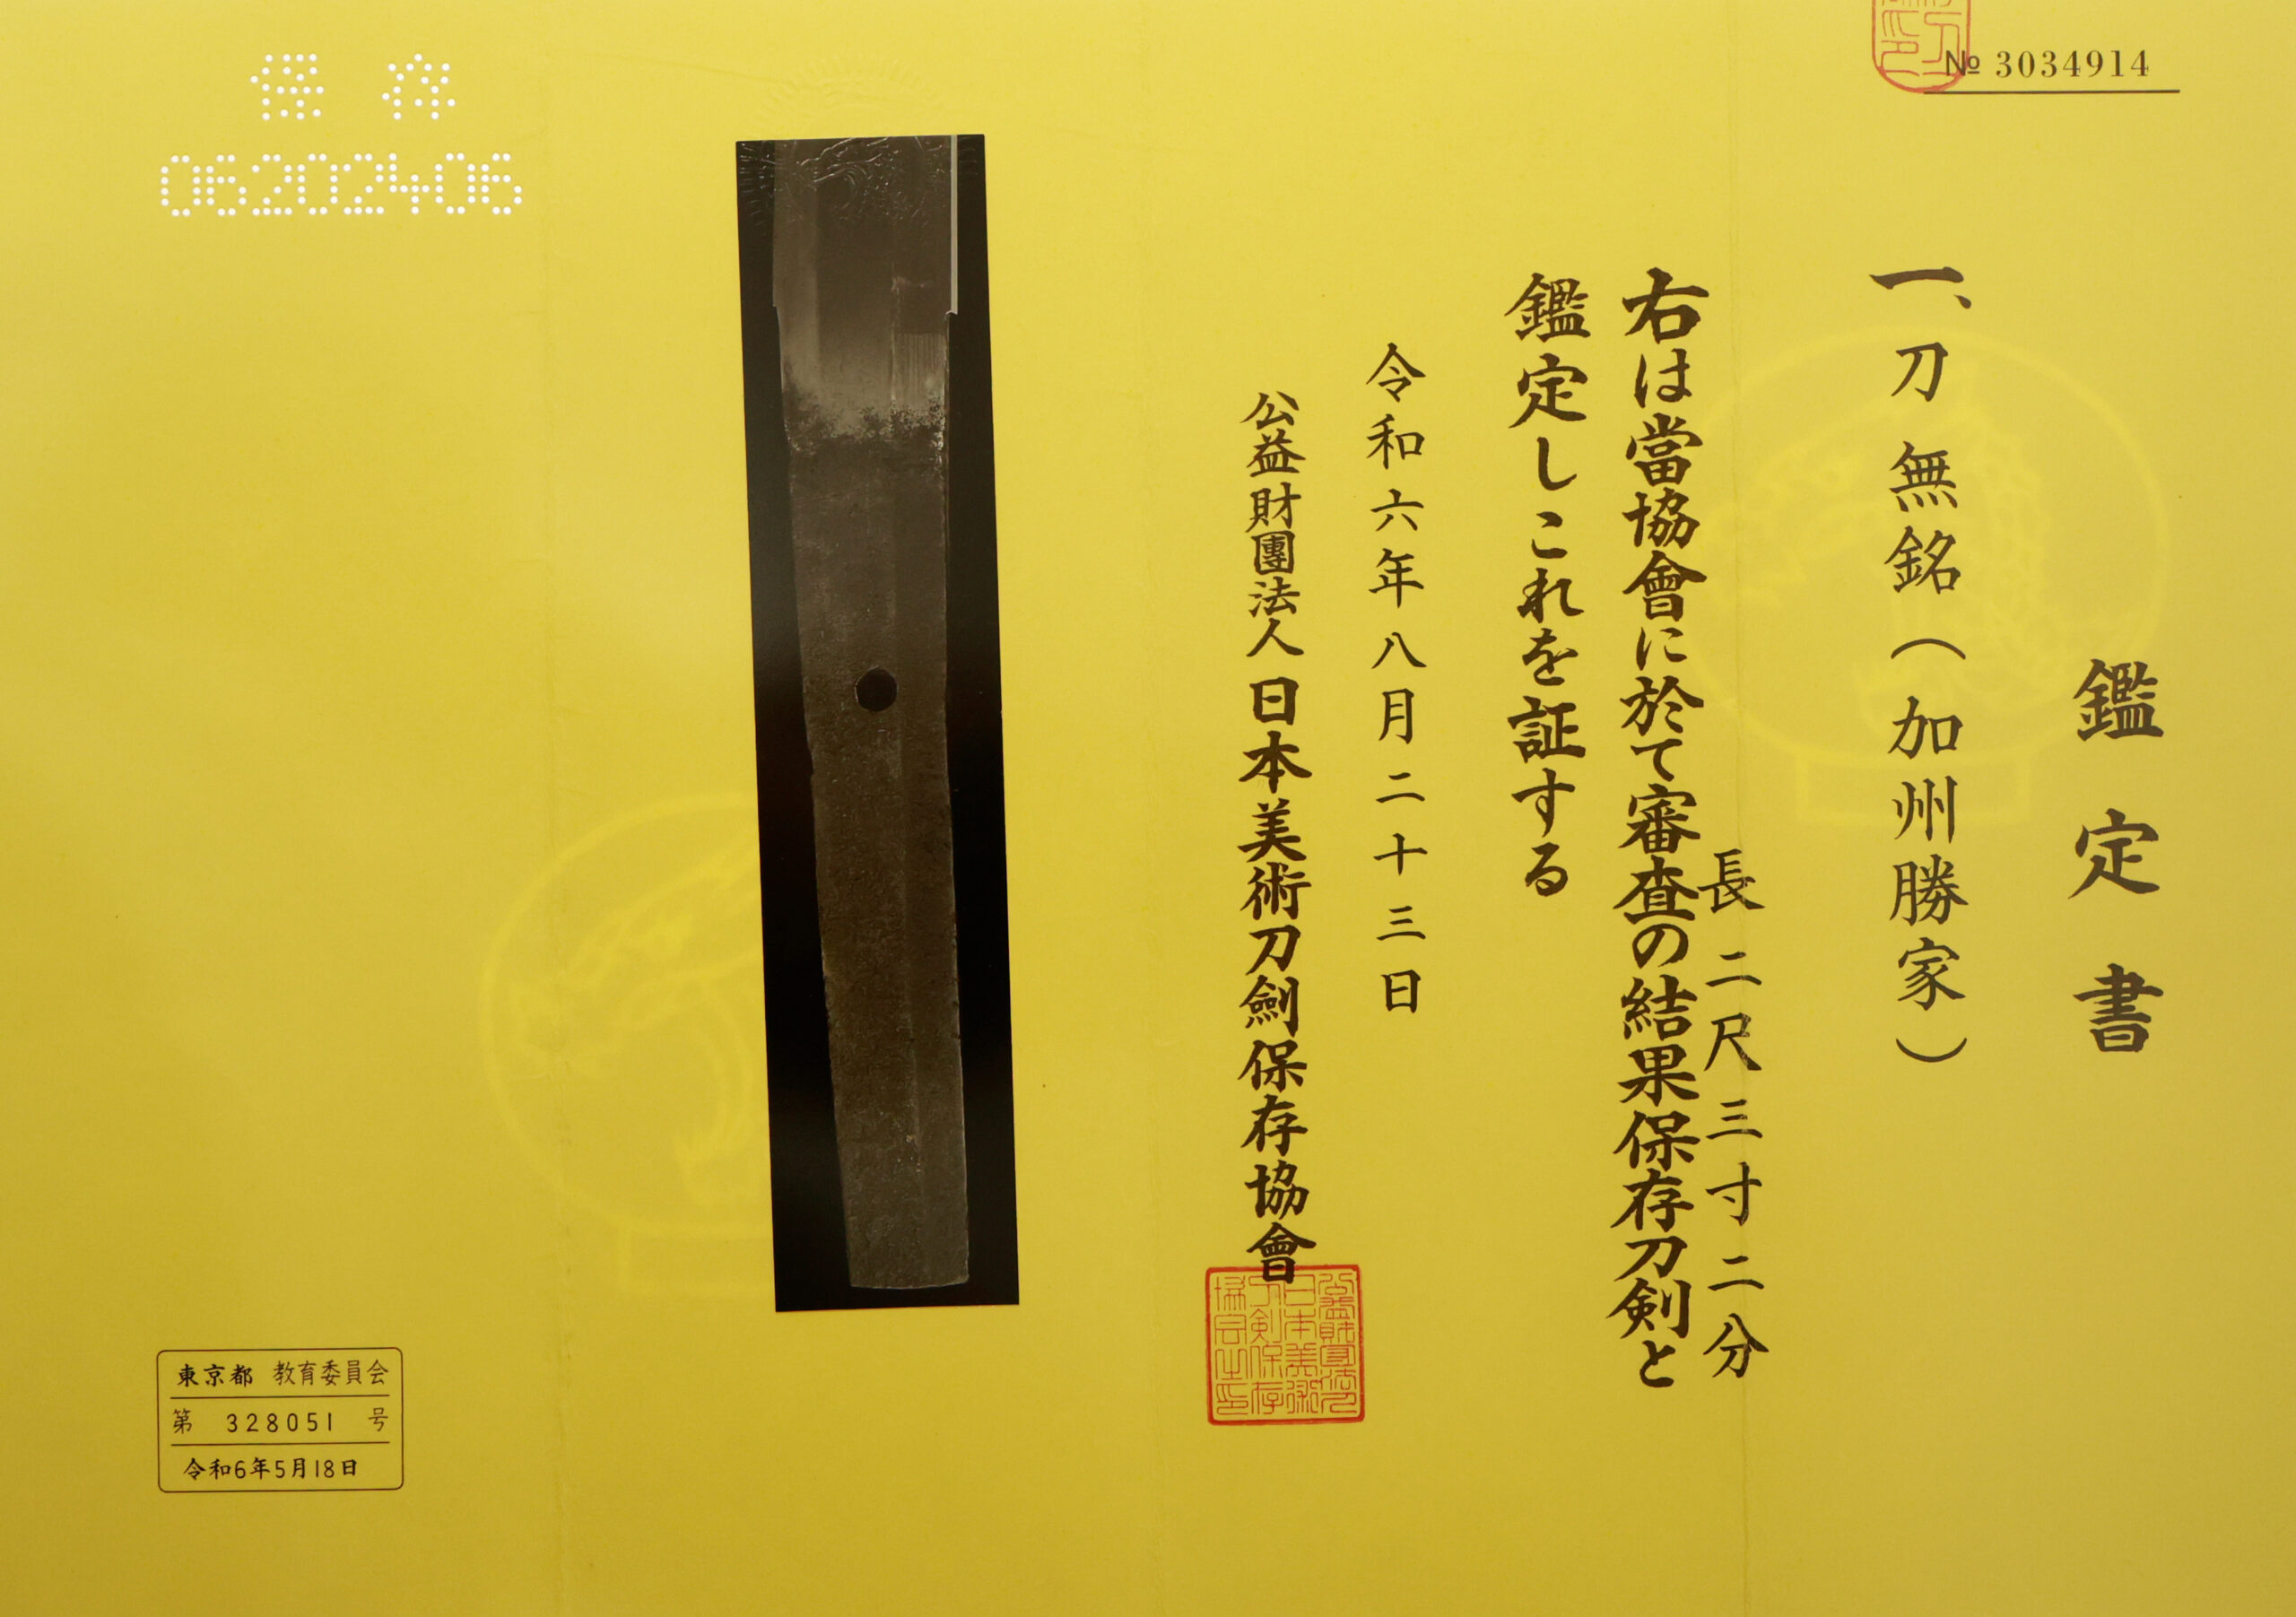 № 3034914
鑑定書
一、刀 無銘(加州勝家)
長 二尺三寸二分
右は當協會に於て審査の結果保存刀剣と
鑑定しこれを証する
令和六年八月二十三日
公益財團法人 日本美術刀劍保存協會
保存
06202406
東京都 教育委員会
第 328051 号
令和6年5月18日